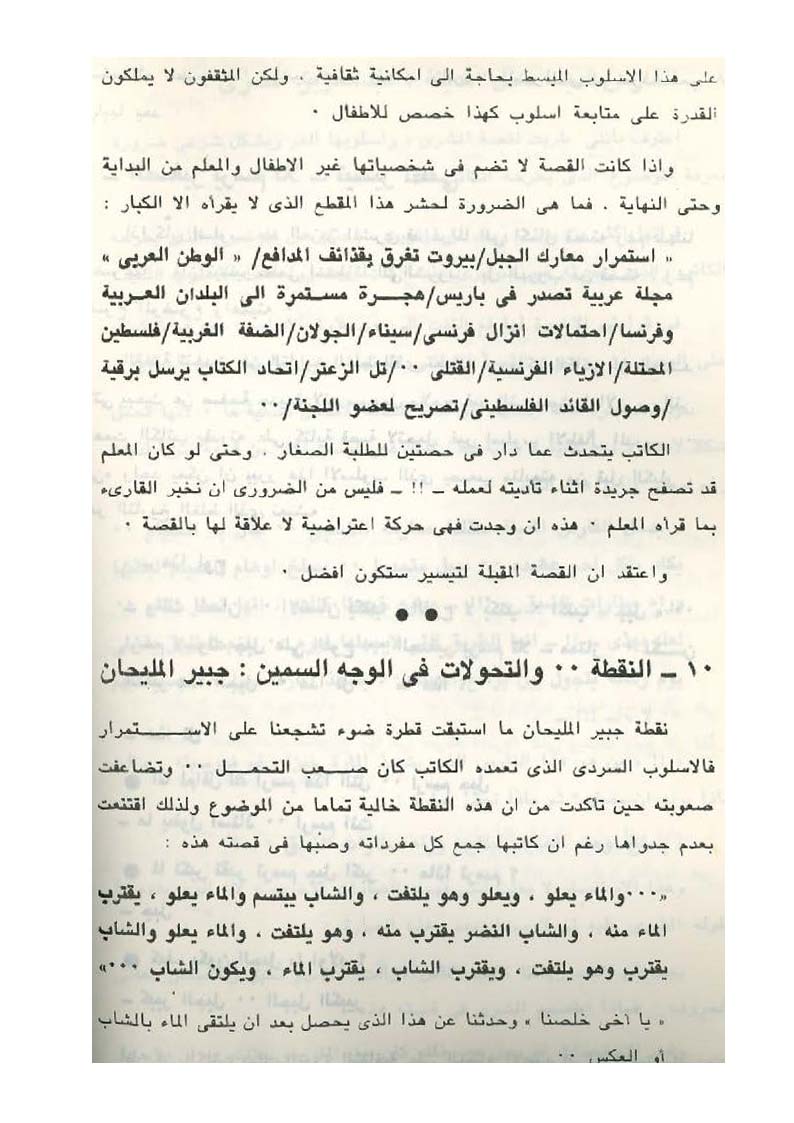 على هذا الاسلوب المبسط بحاجة الى امكانية ثقافية ، ولكن المثقفون لا يملكون
القدرة على متابعة اسلوب كهذا خصص للاطفال ٠
واذا كانت القصة لا تضم فى شخصياتها غير الاطفال والمعلم من البداية
وحتى النهاية ، فما هى الضرورة لحشر هذا المقطع الذى لا يقرأه الا الكبار :
« استمرار معارك الجبل/بيروت تغرق بقذائف المدافع/ « الوطن العربى »
مجلة عربية تصدر فى باريس/هجـــرة مســتمرة الى البلدان العــربية
وفرنسا/احتمالات انزال فرنسى/سيناء/الجولان/الضفة الغربية/فلسطين
المحتلة/الازياء الفرنسية/القتلى ٠٠/تل الزعتر/اتحاد الكتاب يرسل برقية
/وصول القائد الفلسطينى/تصريح لعضو اللجنة/٠٠
الكاتب يتحدث عما دار فى حصتين للطلبة الصغار ، وحتى لو كان المعلم
قد تصفح جريدة اثناء تأديته لعمله ــ !! ــ فليس من الضرورى ان نخبر القارىء
بما قرأه المعلم ٠ هذه ان وجدت فهى حركة اعتراضية لا علاقة لها بالقصة ٠
واعتقد ان القصة المقبلة لتيسير ستكون افضل ٠
● ●
١٠ ــ النقطة ٠٠ والتحولات فى الوجه السمين : جبير المليحان
نقطة جبير المليحان ما استبقت قطرة ضوء تشجعنا على الاســـتمرار
فالاسلوب السردى الذى تعمده الكاتب كان صــعب التحمــل ٠٠ وتضاعفت
صعوبته حين تاكدت من ان هذه النقطة خالية تماما من الموضوع ولذلك اقتنعت
بعدم جدواها رغم ان كاتبها جمع كل مفرداته وصبها فى قصته هذه :
«٠٠٠والماء يعلو ، ويعلو وهو يلتفت ، والشاب يبتسم والماء يعلو ، يقترب
الماء منه ، والشاب النضر يقترب منه ، وهو يلتفت ، والماء يعلو والشاب
يقترب وهو يلتفت ، ويقترب الشاب ، يقترب الماء ، ويكون الشاب ٠٠٠»
« يا أخى خلصنا » وحدثنا عن هذا الذى يحصل بعد ان يلتقى الماء بالشاب
أو العكس ٠٠